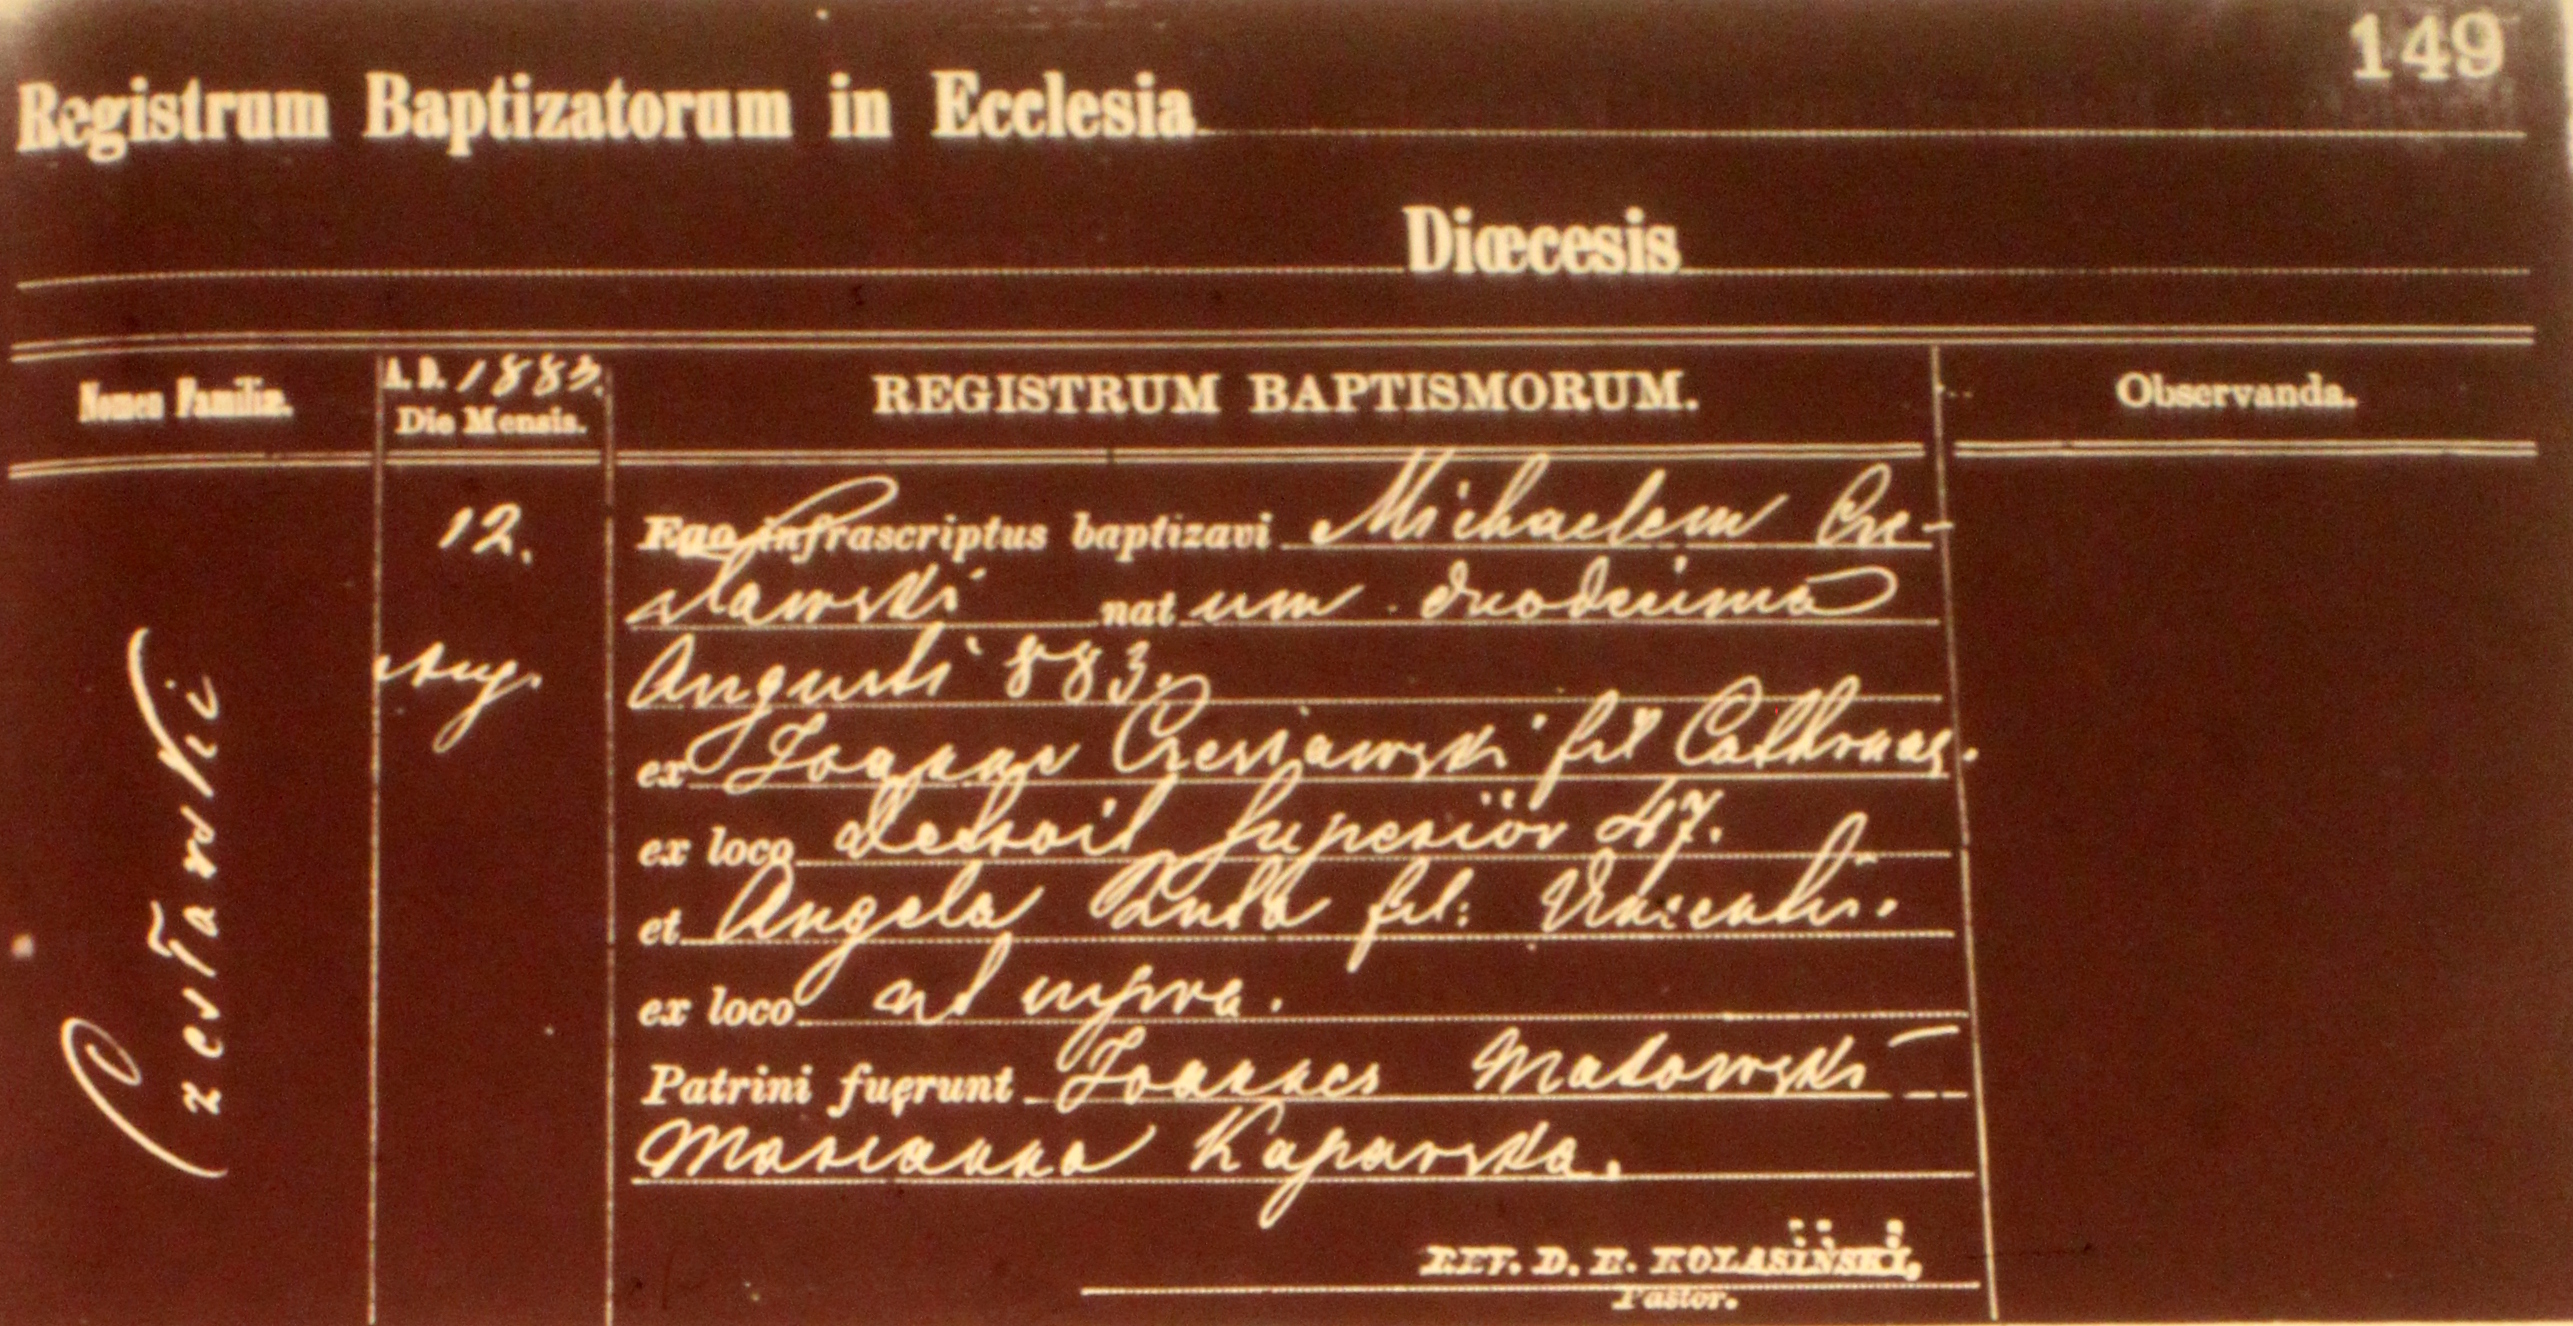 149
Registrum Baptizatorum in Ecclesia
Diœcesis
Nomen Familiæ.
A. D. 1883.
Die Mensis.
REGISTRUM BAPTISMORUM.
Observanda.
Czesławski
12.
Aug.
Ego infrascriptus baptizavi Michaelem Cze-
sławski nat um duodecima
Augusti 883.
ex Joanne Czesławski fil Cathrinae.
ex loco Detroit Superiör 47.
et Angela fil: Vincenti.
ex loco ut supra.
Patrini fuerunt Joannes Makowski
Marianna Kaparska.
REV. D. H. KOLASIŃSKI,
Pastor.